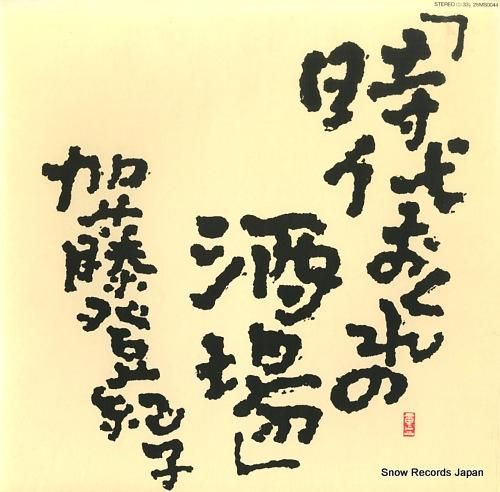 STEREO 33⅓ 25MS0044
「時代おくれの
酒場」
加藤登紀子
Snow Records Japan